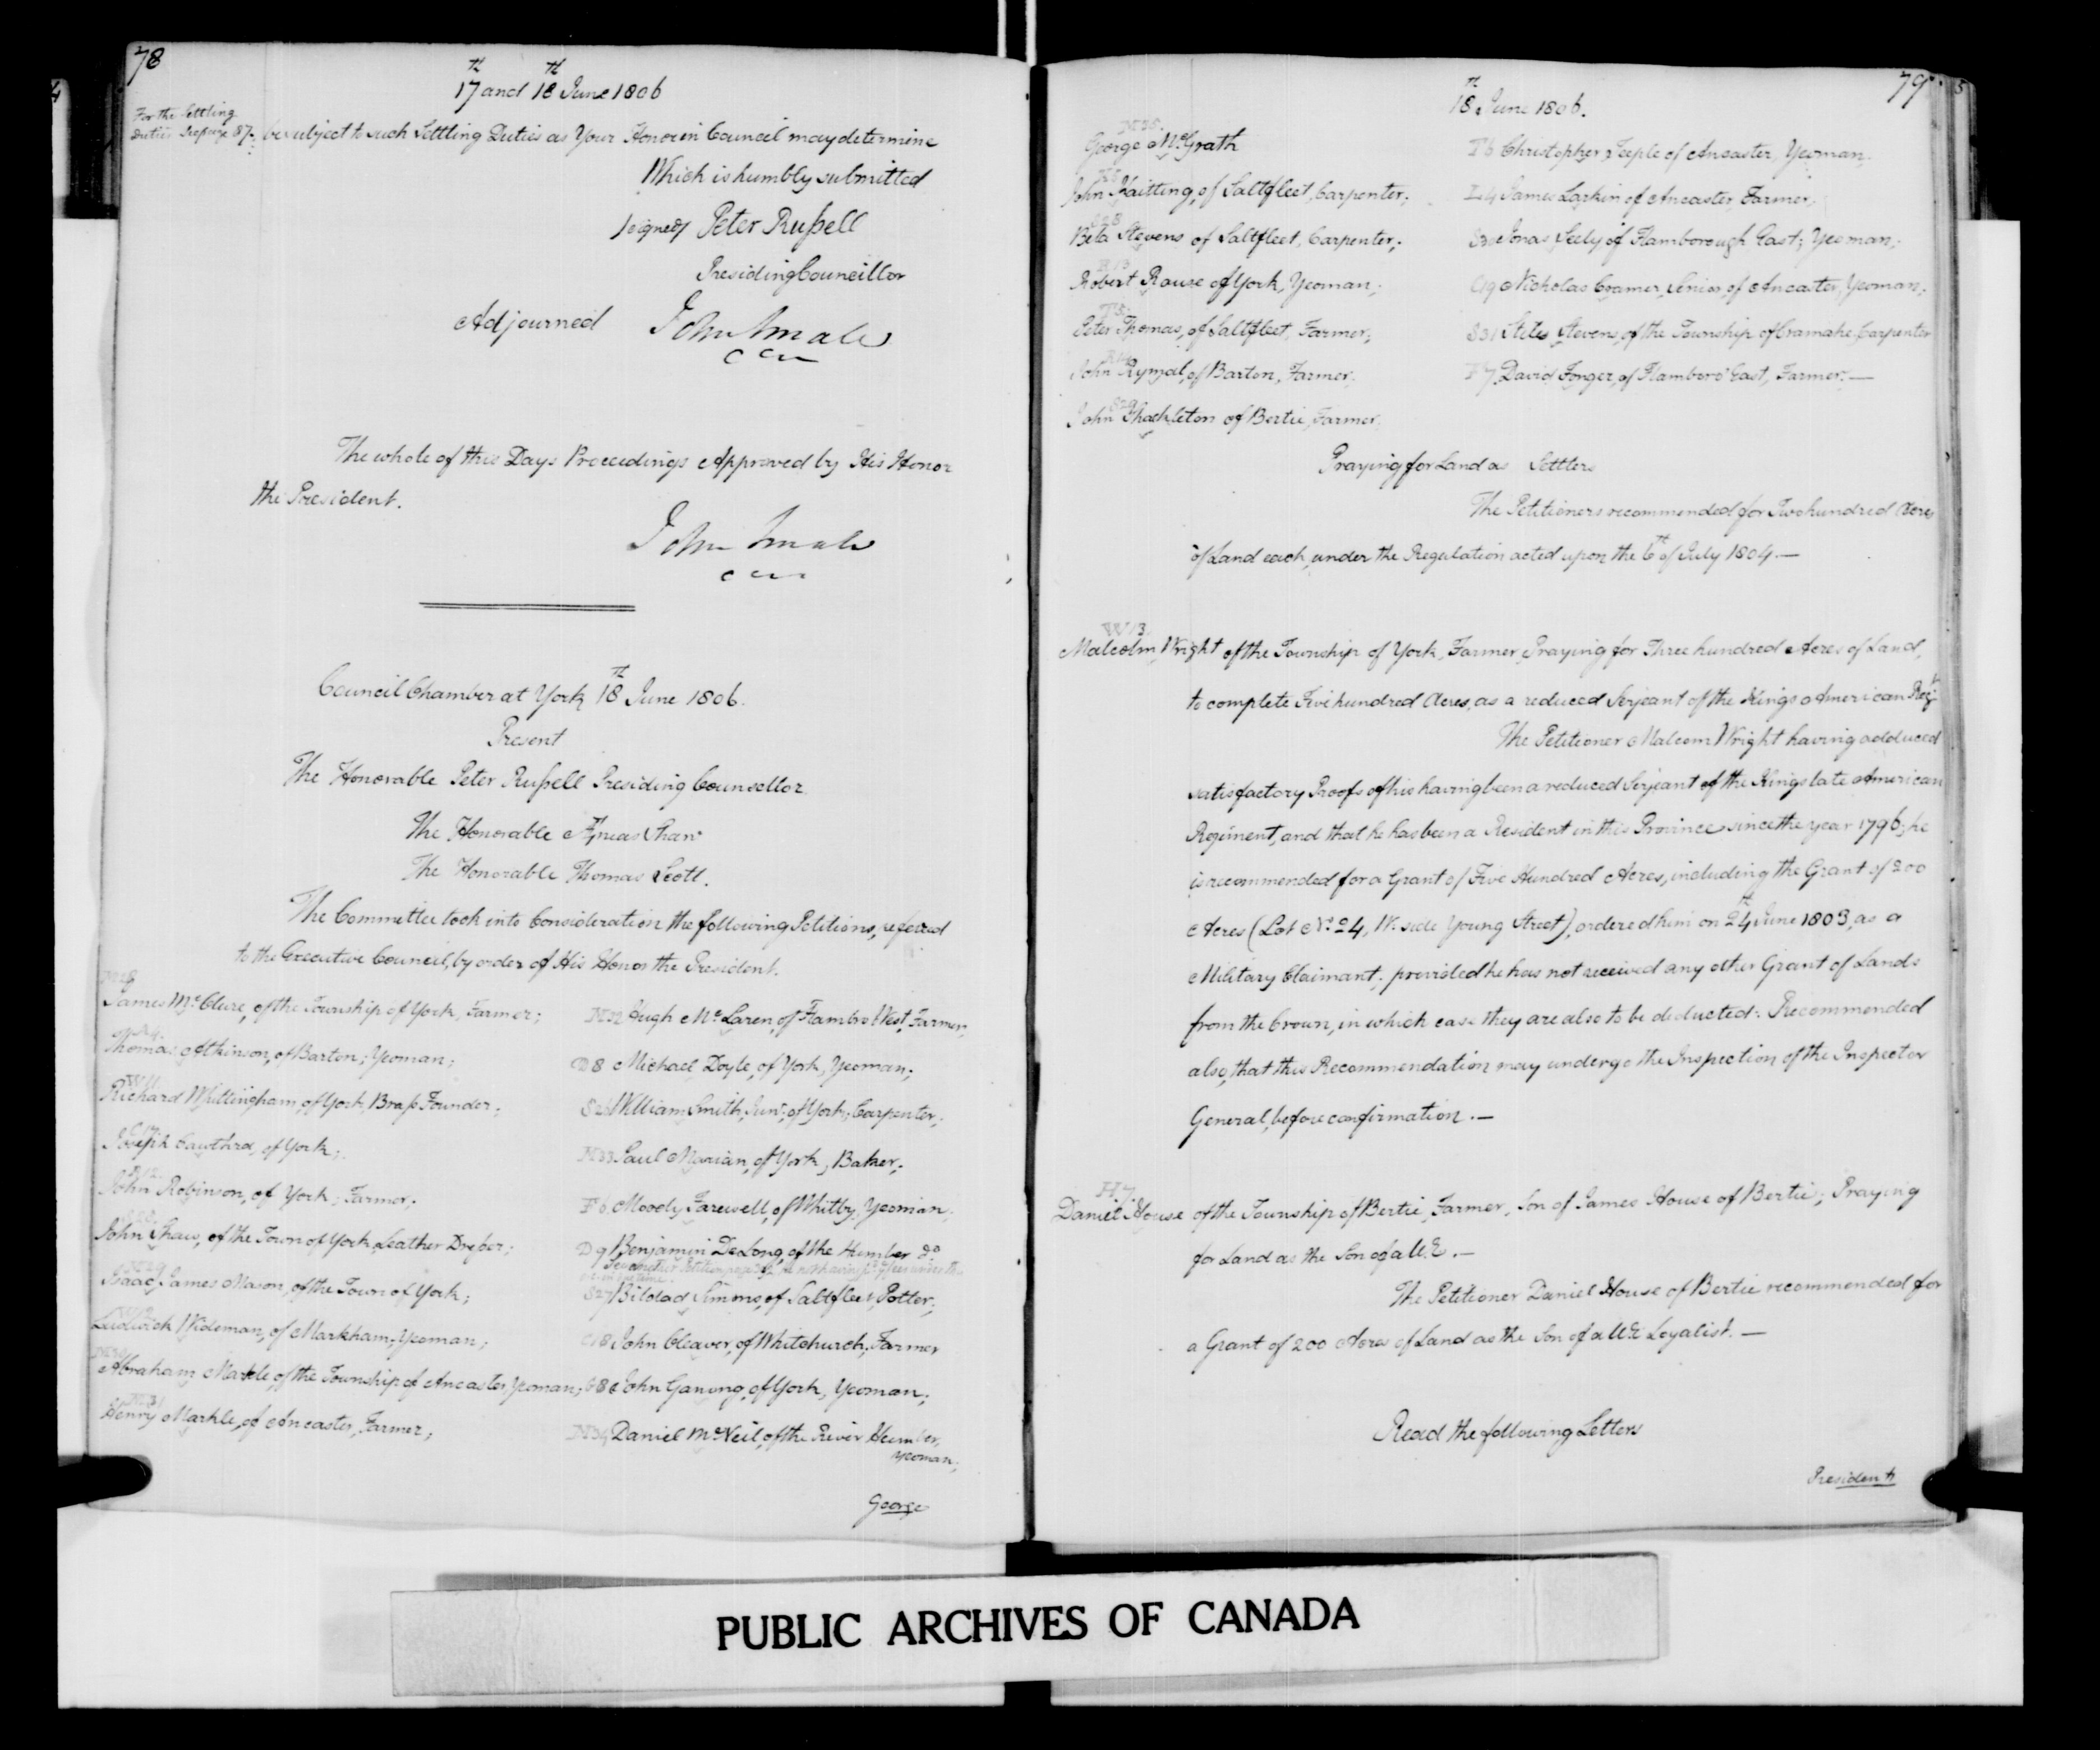 78
17th and 18th June 1806
For the Settling
Duties See page 87.
be subject to such Settling Duties as Your Honor in Council may determine
Which is humbly submitted
signed Peter Russell
Presiding Councillor
Adjourned John Small
CCn
The whole of this Days Proceedings Approved by His Honor
the President.
John Small
CCn
Council Chamber at York 18th June 1806.
Present
The Honorable Peter Russell Presiding Counsellor
The Honorable Æneas Shaw
The Honorable Thomas Scott.
The Committee took into Consideration the following Petitions, referred
to the Executive Council, by order of His Honor the President.
James McClure, of the Township of York, Farmer;
Thomas Atkinson, of Barton, Yeoman;
W11
Richard Whittingham, of York, Brass Founder;
Joseph Cawthra, of York;
R12
John Robinson, of York, Farmer;
John Shaw, of the Town of York, Leather Dresser;
Isaac James Mason, of the Town of York;
W12
Ludwick Wideman, of Markham, Yeoman;
Abraham Markle of the Township of Ancaster, Yeoman;
M31
Henry Markle, of Ancaster, Farmer;
M32 Hugh McLaren, of Flambro West, Farmer,
D8 Michael Doyle, of York, Yeoman;
S26 William Smith, Junr. of York, Carpenter;
M33 Paul Marian, of York, Baker;
F6 Moody Farewell, of Whitby, Yeoman,
D9 Benjamin DeLong, of the Humber do
S27 Bildad Simms, of Saltfleet, Potter;
C18 John Cleaver, of Whitchurch, Farmer
G8 John Ganong, of York, Yeoman;
M34 Daniel McNeil, of the River Humber,
Yeoman;
George
79
18th June 1806.
M35
George McGrath
John Kaitting, of Saltfleet, Carpenter;
S28
Beta Stevens of Saltfleet, Carpenter;
R13
Robert Rouse of York, Yeoman;
T5
Peter Thomas, of Saltfleet, Farmer;
R14
John Rymal, of Barton, Farmer.
S29
John Shackleton of Bertie, Farmer.
T6 Christopher Teeple of Ancaster, Yeoman.
L4 James Larkin of Ancaster, Farmer,
S30 Jonas Seely of Flamborough East, Yeoman;
C19 Nicholas Cramer, Senior, of Ancaster, Yeoman;
S31 Stiles Stevens, of the Township of Cramahe, Carpenter
F7 David Fonger, of Flamboro' East, Farmer.—
Praying for Land as Settlers
The Petitioners recommended for Two hundred Acres
of Land each, under the Regulation acted upon the 6th of July 1804.—
W13
Malcolm Wright of the Township of York, Farmer, Praying for Three hundred Acres of Land,
to complete Five hundred Acres, as a reduced Serjeant of the Kings American Regt
The Petitioner Malcom Wright having adduced
satisfactory Proofs of his having been a reduced Serjeant of the Kings late American
Regiment, and that he has been a Resident in this Province since the year 1796; he
is recommended for a Grant of Five Hundred Acres, including the Grant of 200
Acres (Lot No. 24, W. side Young Street), ordered him on 24th June 1803, as a
Military Claimant, provided he has not received any other Grant of Lands
from the Crown, in which case they are also to be deducted: Recommended
also, that this Recommendation may undergo the Inspection of the Inspector
General, before confirmation.—
H7
Daniel House of the Township of Bertie, Farmer, Son of James House of Bertie; Praying
for Land as the Son of a U.E.—
The Petitioner Daniel House of Bertie recommended for
a Grant of 200 Acres of Land as the Son of a UE Loyalist.—
Read the following Letters
President's
PUBLIC ARCHIVES OF CANADA